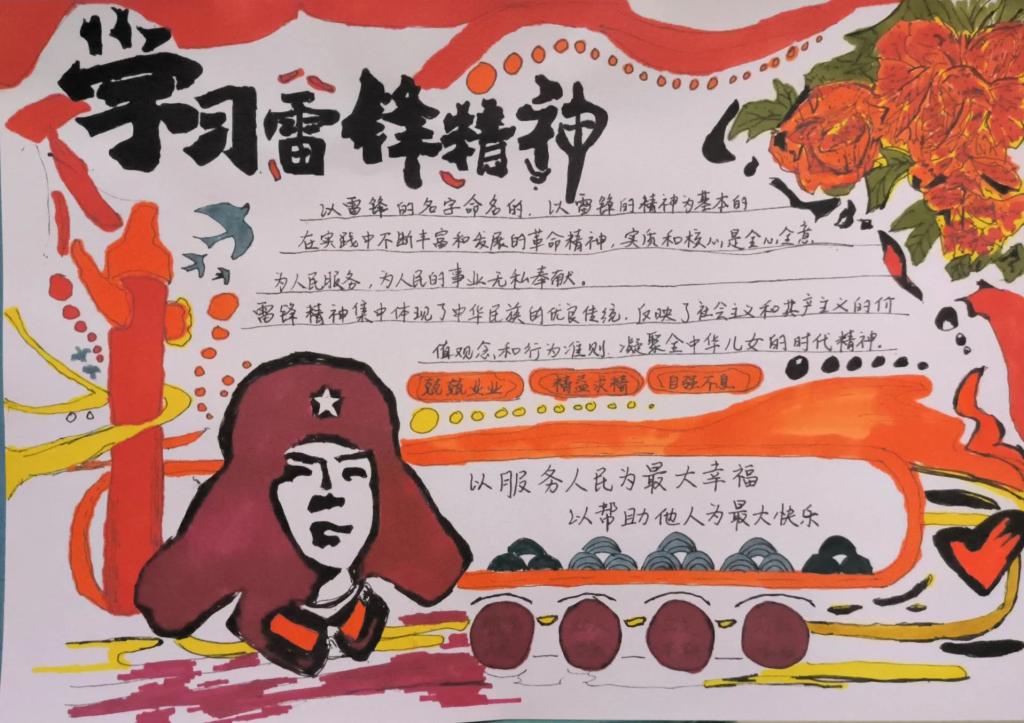 学习雷锋精神
以雷锋的名字命名的，以雷锋的精神为基本的
在实践中不断丰富和发展的革命精神，实质和核心是全心全意
为人民服务，为人民的事业无私奉献。
雷锋精神集中体现了中华民族的优良传统，反映了社会主义和共产主义的价
值观念和行为准则，凝聚全中华儿女的时代精神。
兢兢业业 精益求精 自强不息
以服务人民为最大幸福
以帮助他人为最大快乐